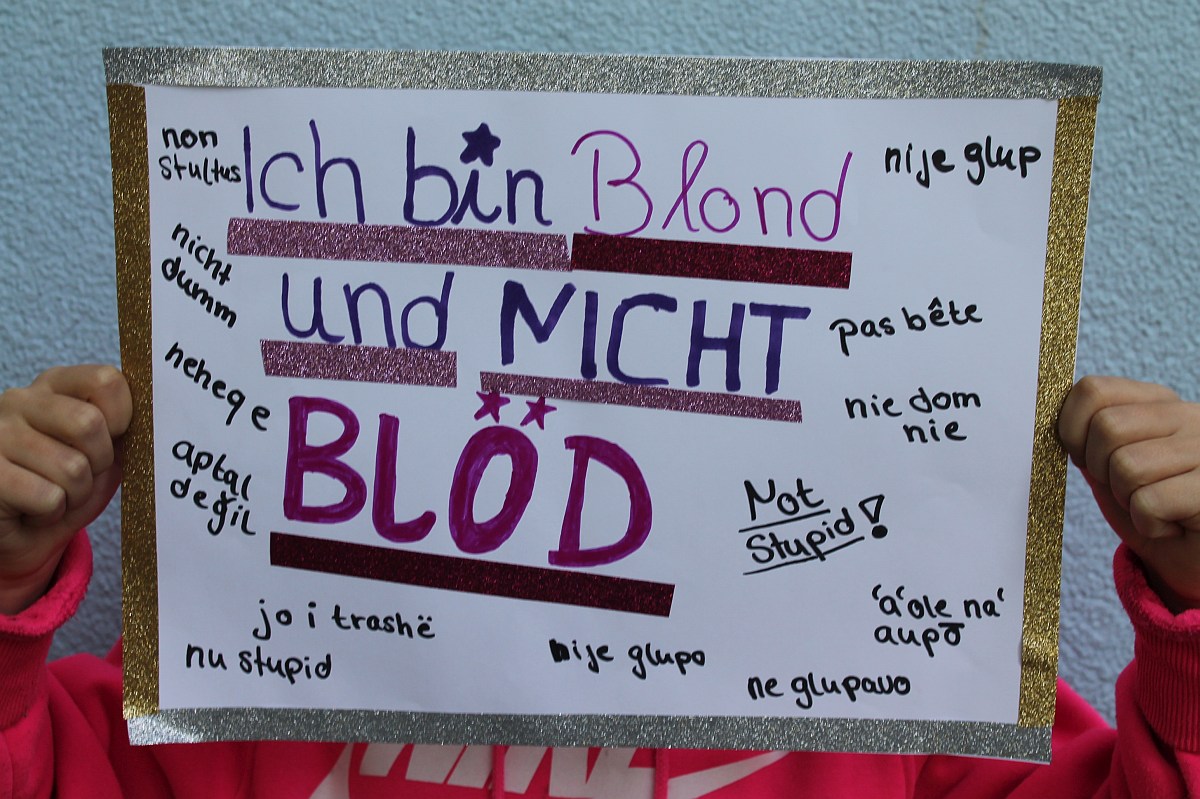 Ich bin Blond
und NICHT
BLÖD
non
Stultus
nicht
dumm
neheqe
aptal
değil
jo i trashë
nu stupid
nije glup
pas bête
nie dom
nie
Not
Stupid!
'a'ole na'
aupō
nije glupo
ne glupavo